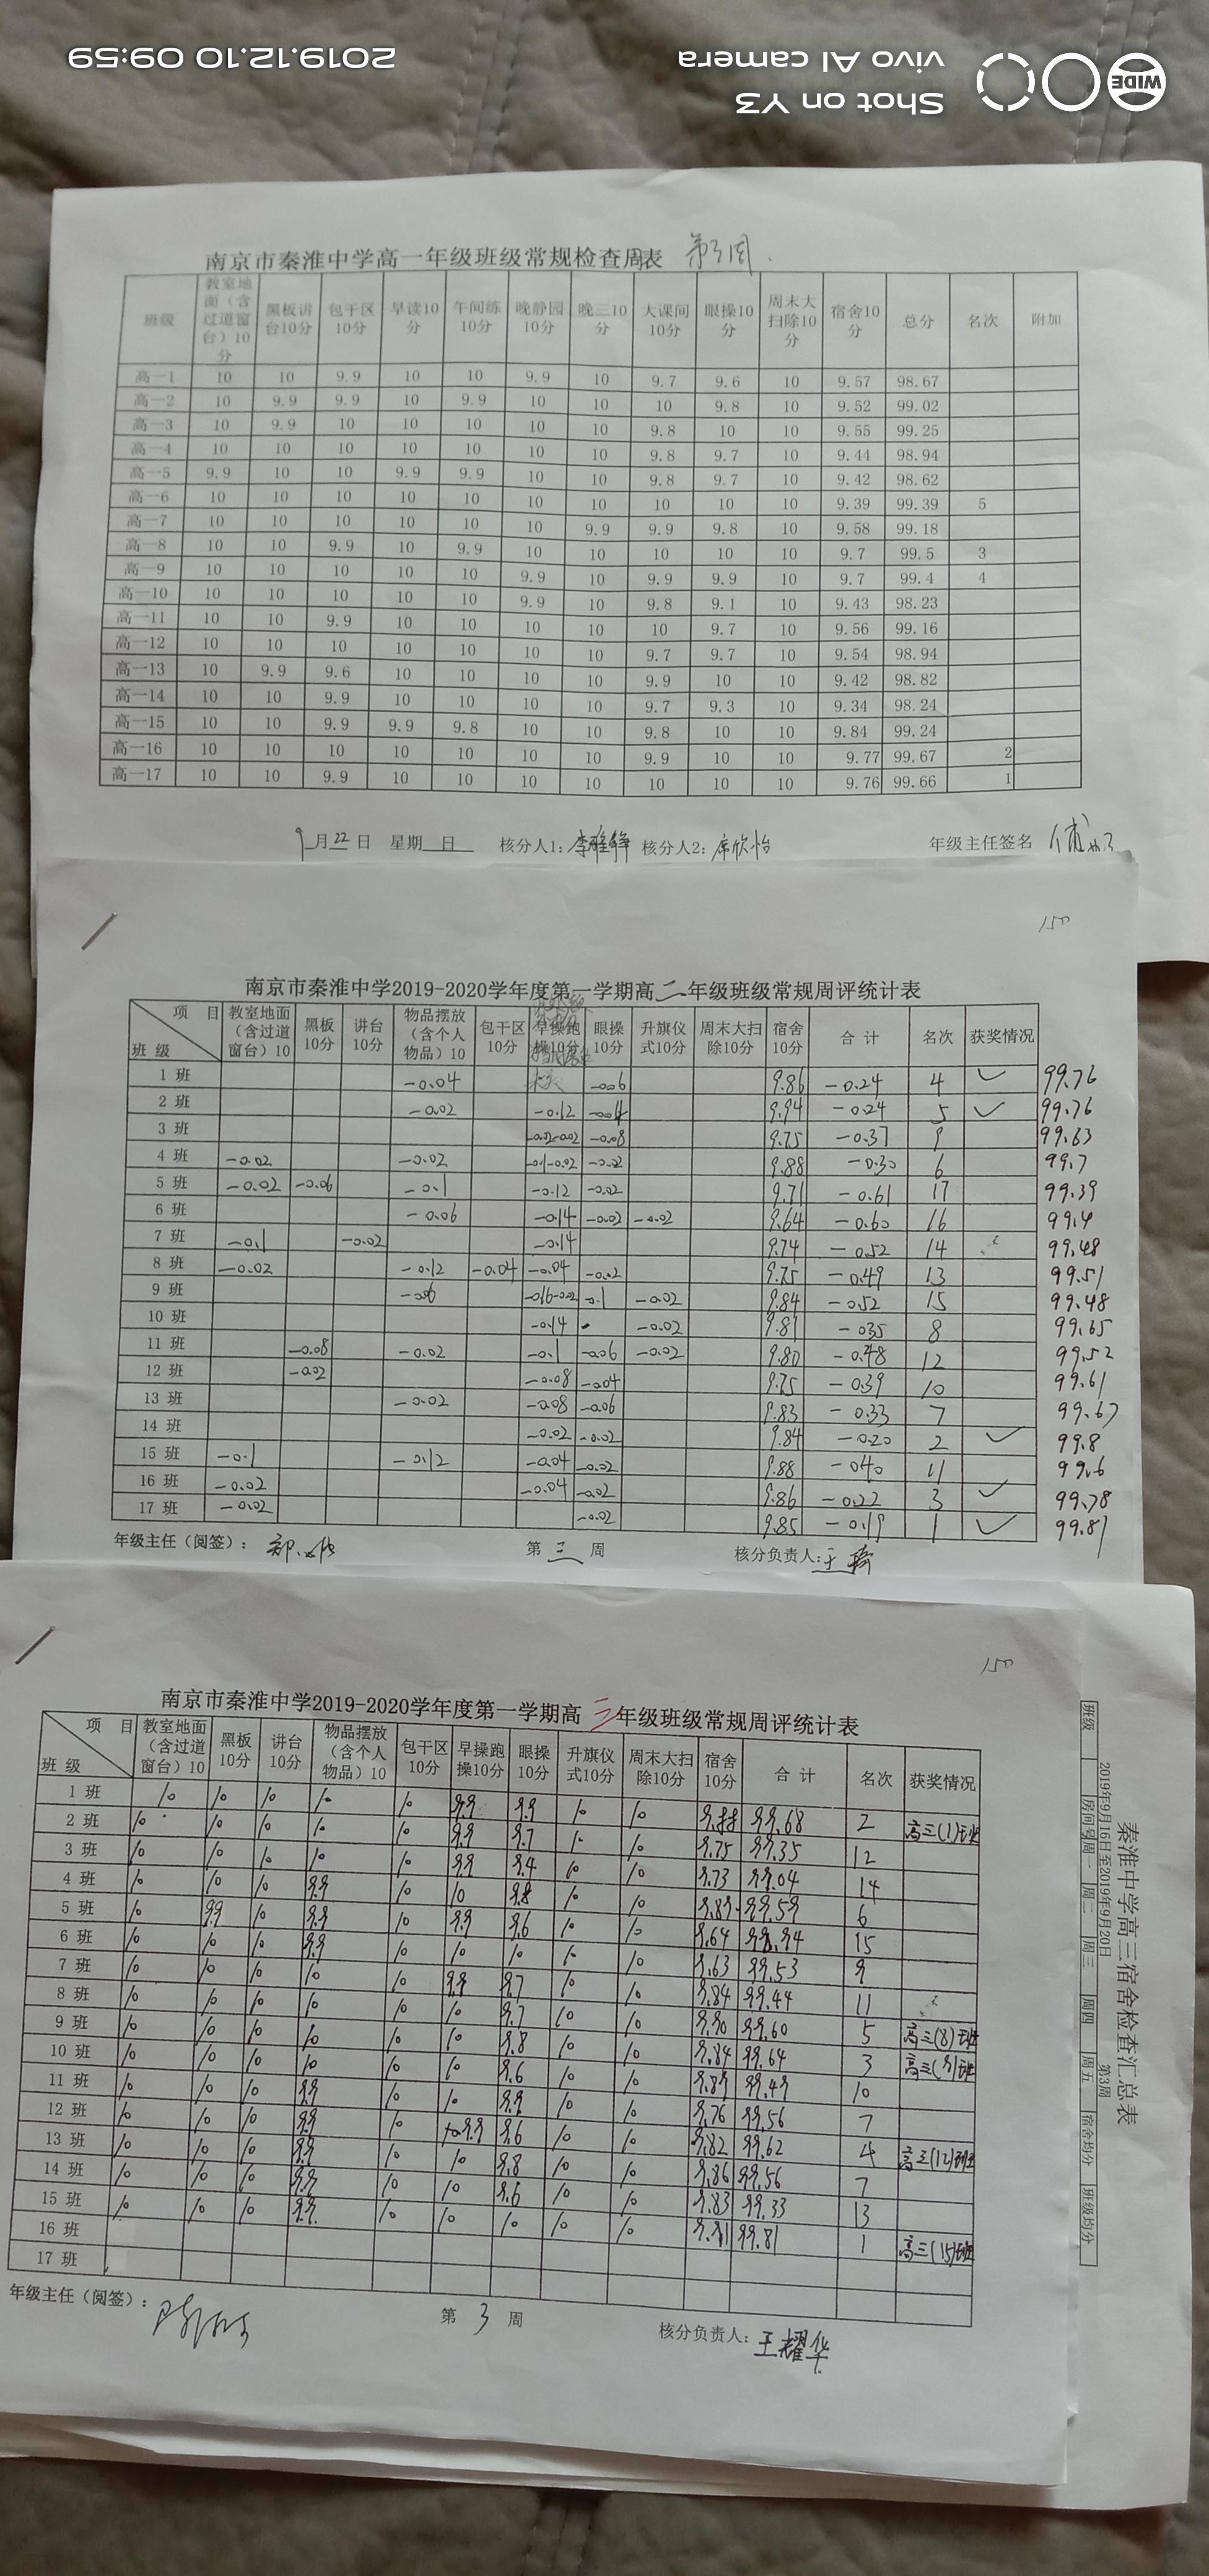 WIDE
Shot on Y3
vivo AI camera
2019.12.10 09:59
南京市秦淮中学高一年级班级常规检查周表 第3周.
班级 教室地面（含过道窗台）10分 黑板讲台10分 包干区10分 早读10分 午间练10分 晚静园10分 晚三10分 大课间10分 眼操10分 周末大扫除10分 宿舍10分 总分 名次 附加
高一1 10 10 9.9 10 10 9.9 10 9.7 9.6 10 9.57 98.67
高一2 10 9.9 9.9 10 9.9 10 10 10 9.8 10 9.52 99.02
高一3 10 9.9 10 10 10 10 10 9.8 10 10 9.55 99.25
高一4 10 10 10 10 10 10 10 9.8 9.7 10 9.44 98.94
高一5 9.9 10 10 9.9 9.9 10 10 9.8 9.7 10 9.42 98.62
高一6 10 10 10 10 10 10 10 10 10 10 9.39 99.39 5
高一7 10 10 10 10 10 10 9.9 9.9 9.8 10 9.58 99.18
高一8 10 10 9.9 10 9.9 10 10 10 10 10 9.7 99.5 3
高一9 10 10 10 10 10 9.9 10 9.9 9.9 10 9.7 99.4 4
高一10 10 10 10 10 10 9.9 10 9.8 9.1 10 9.43 98.23
高一11 10 10 9.9 10 10 10 10 10 9.7 10 9.56 99.16
高一12 10 10 10 10 10 10 10 9.7 9.7 10 9.54 98.94
高一13 10 9.9 9.6 10 10 10 10 9.9 10 10 9.42 98.82
高一14 10 10 9.9 10 10 10 10 9.7 9.3 10 9.34 98.24
高一15 10 10 9.9 9.9 9.8 10 10 9.8 10 10 9.84 99.24
高一16 10 10 10 10 10 10 10 9.9 10 10 9.77 99.67 2
高一17 10 10 9.9 10 10 10 10 10 10 10 9.76 99.66 1
9月22日 星期 日 核分人1： 核分人2：席欣怡 年级主任签名
南京市秦淮中学2019-2020学年度第一学期高二年级班级常规周评统计表
项目 班级 教室地面（含过道窗台）10 黑板10分 讲台10分 物品摆放（含个人物品）10 包干区10分 早操跑操10分 眼操10分 升旗仪式10分 周末大扫除10分 宿舍10分 合计 名次 获奖情况
1 班 -0.04 -0.06 9.86 -0.24 4 ✓ 99.76
2 班 -0.02 -0.12 -0.04 9.94 -0.24 5 ✓ 99.76
3 班 -0.02-0.02 -0.08 9.75 -0.37 9 99.63
4 班 -0.02 -0.02 -0.1-0.02 -0.02 9.88 -0.30 6 99.7
5 班 -0.02 -0.06 -0.1 -0.12 -0.02 9.71 -0.61 17 99.39
6 班 -0.06 -0.14 -0.02 -0.02 9.64 -0.60 16 99.4
7 班 -0.1 -0.02 -0.14 9.74 -0.52 14 99.48
8 班 -0.02 -0.12 -0.04 -0.04 -0.02 9.75 -0.49 13 99.51
9 班 -0.06 -0.16-0.02 -0.1 -0.02 9.84 -0.52 15 99.48
10 班 -0.14 -0.02 9.81 -0.35 8 99.65
11 班 -0.08 -0.02 -0.1 -0.06 -0.02 9.80 -0.48 12 99.52
12 班 -0.02 -0.08 -0.04 9.75 -0.39 10 99.61
13 班 -0.02 -0.08 -0.06 9.83 -0.33 7 99.67
14 班 -0.02 -0.02 9.84 -0.20 2 ✓ 99.8
15 班 -0.1 -0.12 -0.04 -0.02 9.88 -0.40 11 99.6
16 班 -0.02 -0.04 -0.02 9.86 -0.22 3 ✓ 99.78
17 班 -0.02 -0.02 9.85 -0.19 1 ✓ 99.81
年级主任（阅签）： 第 三 周 核分负责人：王
南京市秦淮中学2019-2020学年度第一学期高三年级班级常规周评统计表
项目 班级 教室地面（含过道窗台）10 黑板10分 讲台10分 物品摆放（含个人物品）10 包干区10分 早操跑操10分 眼操10分 升旗仪式10分 周末大扫除10分 宿舍10分 合计 名次 获奖情况
1 班 10 10 10 10 10 9.9 9.9 10 10 9.88 99.68 2 高三(1)班
2 班 10 10 10 10 10 9.9 9.7 10 10 9.75 99.35 12
3 班 10 10 10 10 10 9.9 9.4 10 10 9.73 99.04 14
4 班 10 10 10 9.9 10 10 9.8 10 10 9.89 99.59 6
5 班 10 9.9 10 9.9 10 9.9 9.6 10 10 9.64 98.94 15
6 班 10 10 10 9.9 10 10 10 10 10 9.63 99.53 9
7 班 10 10 10 10 10 9.9 9.7 10 10 9.84 99.44 11
8 班 10 10 10 10 10 10 9.7 10 10 9.90 99.60 5 高三(8)班
9 班 10 10 10 10 10 10 9.8 10 10 9.84 99.64 3 高三(9)班
10 班 10 10 10 10 10 10 9.6 10 10 9.89 99.49 10
11 班 10 10 10 9.9 10 10 9.9 10 10 9.76 99.56 7
12 班 10 10 10 9.9 10 9.9 9.6 10 10 9.82 99.62 4 高三(12)班
13 班 10 10 10 9.9 10 10 9.8 10 10 9.86 99.56 7
14 班 10 10 10 9.9 10 10 9.6 10 10 9.83 99.33 13
15 班 10 10 10 9.9 10 10 10 10 10 9.91 99.81 1 高三(15)班
16 班
17 班
年级主任（阅签）： 第 3 周 核分负责人：王耀华
秦淮中学高三宿舍检查汇总表
2019年9月16日至2019年9月20日 第3周
班级 房间号 周一 周二 周三 周四 周五 宿舍均分 班级均分